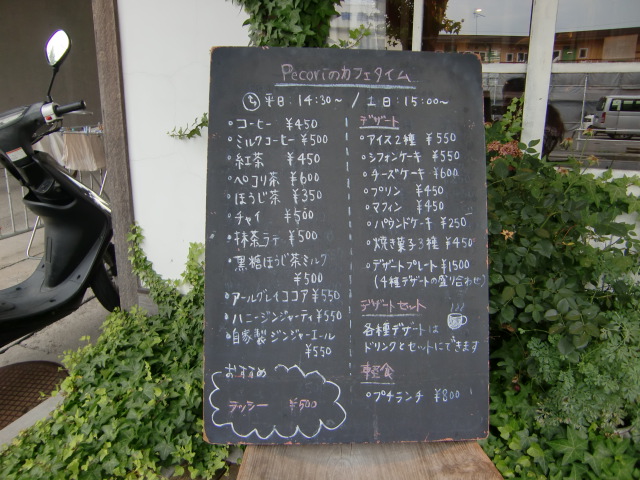 Pecoriのカフェタイム
平日:14:30~ / 土日:15:00~
・コーヒー ¥450
・ミルクコーヒー ¥500
・紅茶 ¥450
・ペコリ茶 ¥600
・ほうじ茶 ¥350
・チャイ ¥500
・抹茶ラテ ¥500
・黒糖ほうじ茶ミルク
¥500
・アールグレイココア ¥550
・ハニージンジャーティ ¥550
・自家製ジンジャーエール
¥550
おすすめ
ラッシー ¥500
デザート
・アイス2種 ¥550
・シフォンケーキ ¥550
・チーズケーキ ¥600
・プリン ¥450
・マフィン ¥450
・パウンドケーキ ¥250
・焼き菓子3種 ¥450
・デザートプレート ¥1500
(4種デザートの盛り合わせ)
デザートセット
各種デザートは
ドリンクとセットにできます
軽食
・プチランチ ¥800